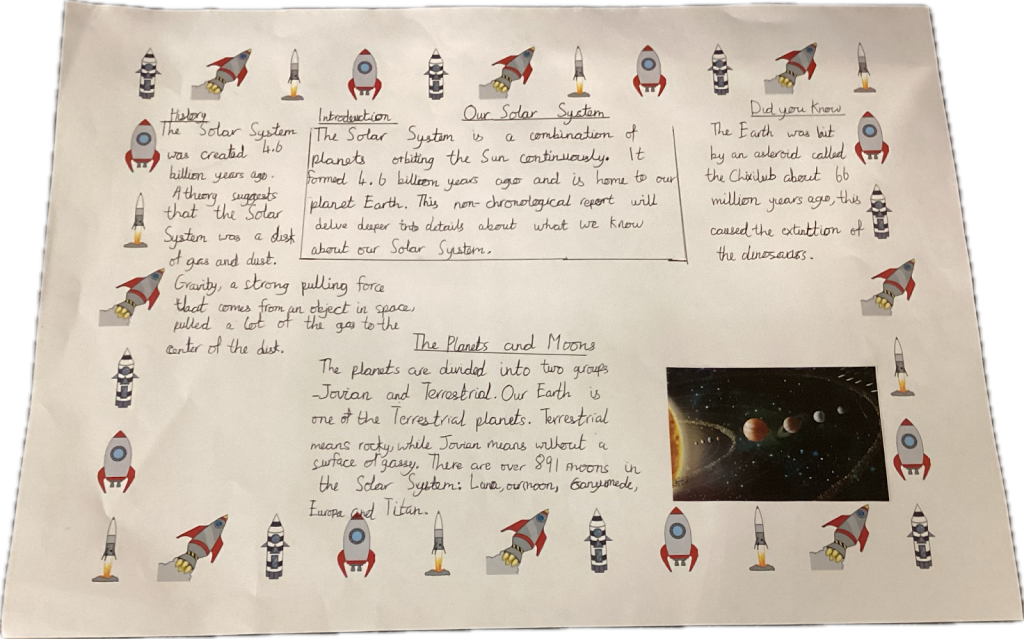 Our Solar System
History
The Solar System
was created 4.6
billion years ago.
A theory suggests
that the Solar
System was a disk
of gas and dust.
Gravity, a strong pulling force
that comes from an object in space,
pulled a lot of the gas to the
center of the disk.
Introduction
The Solar System is a combination of
planets orbiting the Sun continuously. It
formed 4.6 billion years ago and is home to our
planet Earth. This non-chronological report will
delve deeper into details about what we know
about our Solar System.
Did you know
The Earth was hit
by an asteroid called
the Chixilub about 66
million years ago, this
caused the extinttion of
the dinosaurs.
The Planets and Moons
The planets are divided into two groups
-Jovian and Terrestrial. Our Earth is
one of the Terrestrial planets. Terrestrial
means rocky, while Jovian means without a
surface of gassy. There are over 891 moons in
the Solar System: Luna, our moon, Ganymede,
Europa and Titan.